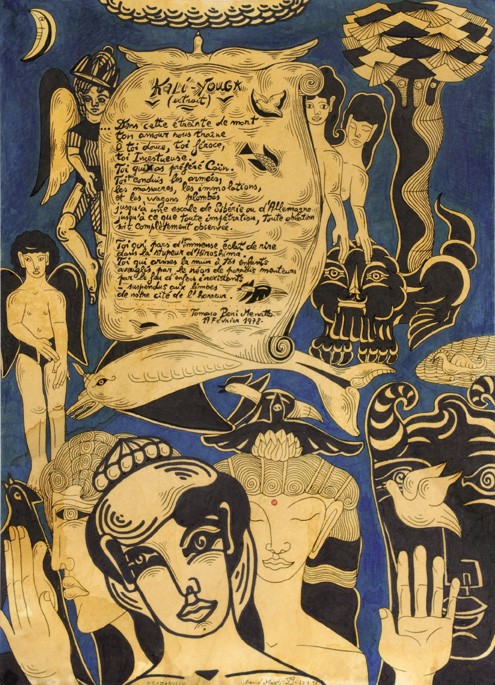 KALÍ-YOUGA
(extrait)
... Dans cette étreinte de mort
ton amour nous traîne
ô toi douce, toi féroce,
toi Incestueuse.
Toi qui as préféré Caïn.
Toi conduis les armées,
les massacres, les immolations,
et les wagons plombés
jusqu'à une escale de Sibérie ou d'Allemagne
jusqu'à ce que toute imploration, toute
soit complètement observée.
Toi qui pars d'immense éclat de rire
dans la stupeur d'Hiroshima
Toi qui armes la main à tes enfants
aveuglés, par le néon de paradis menteurs
par le feu d'enfers inexistants
suspendus aux limbes
de notre cité de l'horreur.
Tomaso Beni
17 Février 1978.